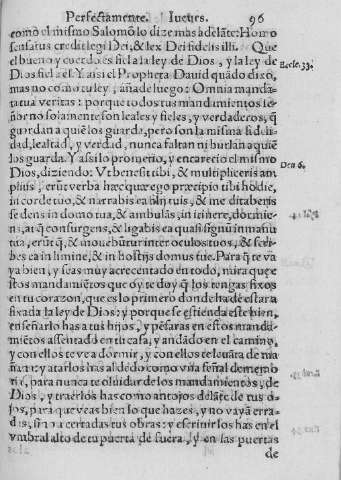 Perfectamente. Iueues. 96
como el mismo Salomõ lo dize mas adelãte: Homo
sensatus credit legi Dei, & lex Dei fidelis illi. Que
el bueno y cuerdo es fiel a la ley de Dios, y la ley de
Dios fiel a el. Y assi el Propheta Dauid quãdo dixo,
mas no como tu ley, añade luego: Omnia manda-
ta tua veritas: porque todos tus mandimientos se-
ñor no solamente son leales y fieles, y verdaderos, q̃
guardan a quiẽ los guarda, pero son la misma fideli-
dad, lealtad, y verdad, nunca faltan ni burlan a quiẽ
los guarda. Y assi lo prometio, y encarecio el mismo
Dios, diziendo: Vt bene sit tibi, & multipliceris am
plius, erũt verba hæc quæ ego præcipio tibi hodie,
in corde tuo, & narrabis ea filijs tuis, & meditaberis
sedens in domo tua, & ambulãs, in itinere, dormiẽ-
ens, atq̃ consurgens, & ligabis ea quasi signũ in manu
tua, erũt q̃, & mouebũtur inter oculos tuos, & scri-
bes ea in limine, & in hostijs domus tuæ. Para q̃ te va
ya bien, y seas muy acrecentado en todo, mira que e-
stos mandamiẽtos que oy te doy q̃ los tengas fixos
en tu coraçon, que es lo primero donde ha dẽ estar a
fixada la ley de Dios: y porque se estienda este bien,
enseñarlo has a tus hijos, y pẽsaras en estos manda-
miẽtos assentado en tu casa, y andãdo en el camino,
y con ellos te vea dormir, y con ellos te leuãta de ma
ñana: y atarlos has al dedo como vna señal de memo
ria, para nunca te oluidar de los mandamientos, de
Dios, y traerlos has como antojos delãte de tus o-
jos, para que veas bien lo que hazes, y no vayã erra-
das, sino acertadas tus obras: y escriuirlos has en el
vmbral alto de tu puerta de fuera, y en las puertas
de
Eccle. 33.
Deu 6.